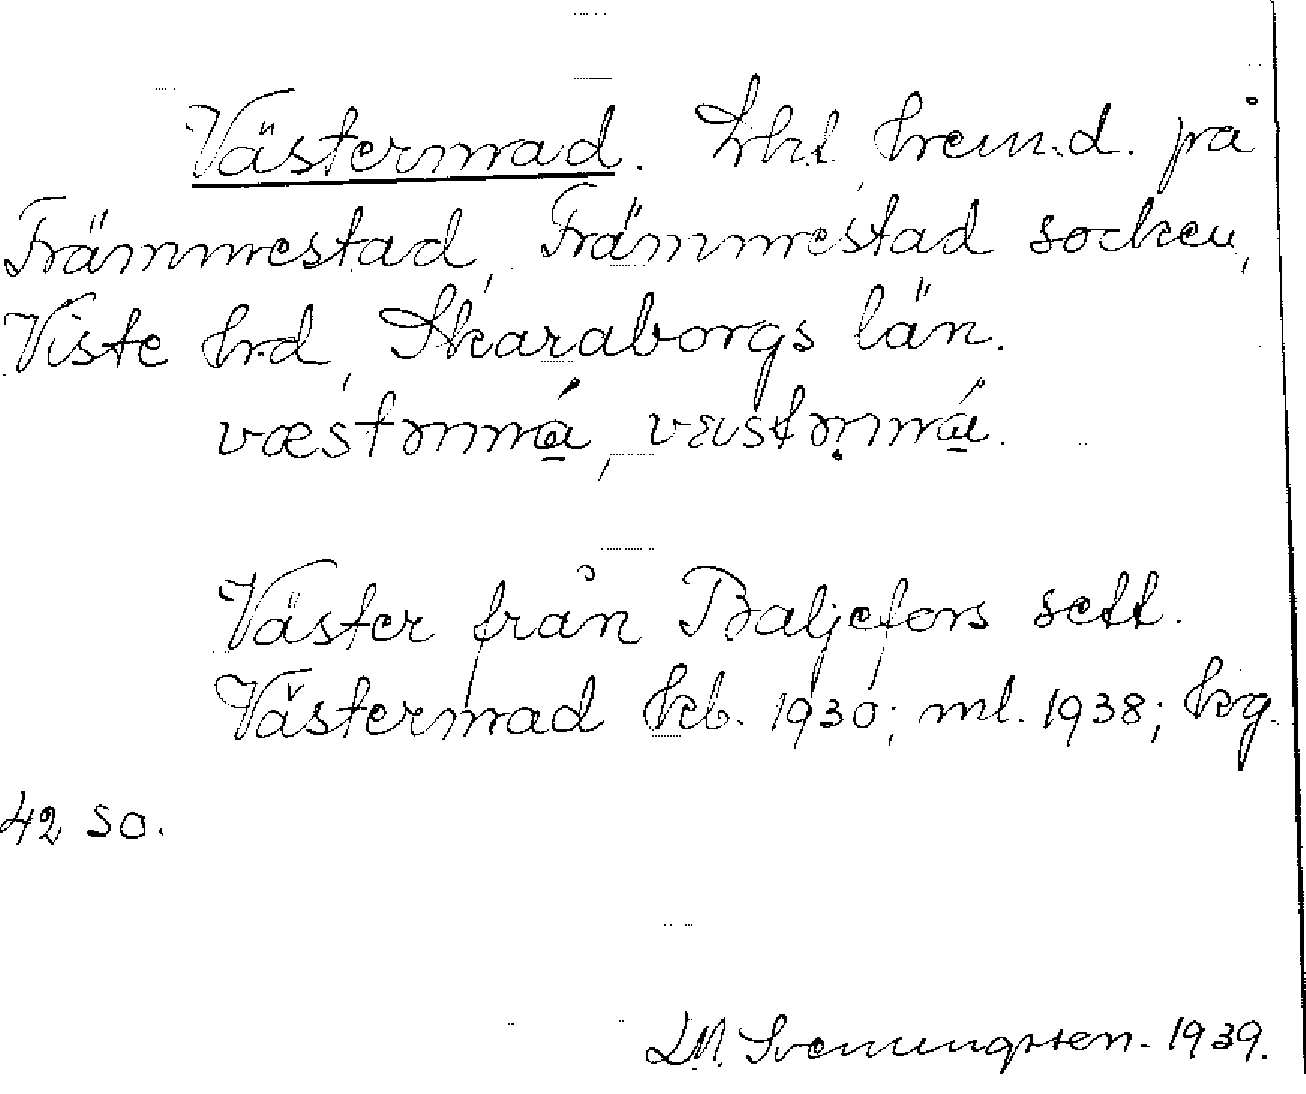 Västermad. Lht hemd. på
Främmestad, Främmestad socken,
Viste hrd, Skaraborgs län.
væstrmmá, væstrmmá.
Väster från Baljefors sett.
Västermad hcb. 1930; ml. 1938; hrg.
42 SO.
Svenungsson. 1939.